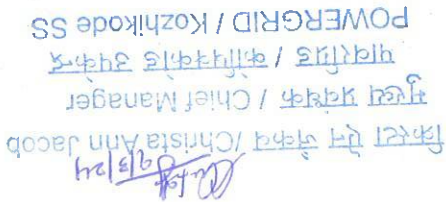 9/3/24
क्रिस्टा ऐन जेकब /Christa Ann Jacob
मुख्य प्रबंधक / Chief Manager
पावरग्रिड / कोषिक्कोड उपकेन्द्र
POWERGRID / Kozhikode SS